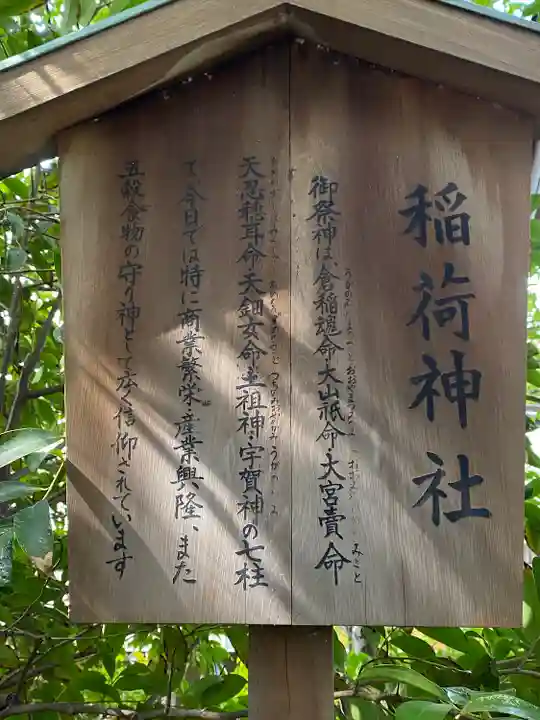 稲荷神社
御祭神は、倉稲魂命・大山祇命・大宮賣命
天忍穂耳命・天鈿女命・土祖神・宇賀神の七柱
で、今日では特に商業繁栄・産業興隆、また
五穀食物の守り神として広く信仰されています